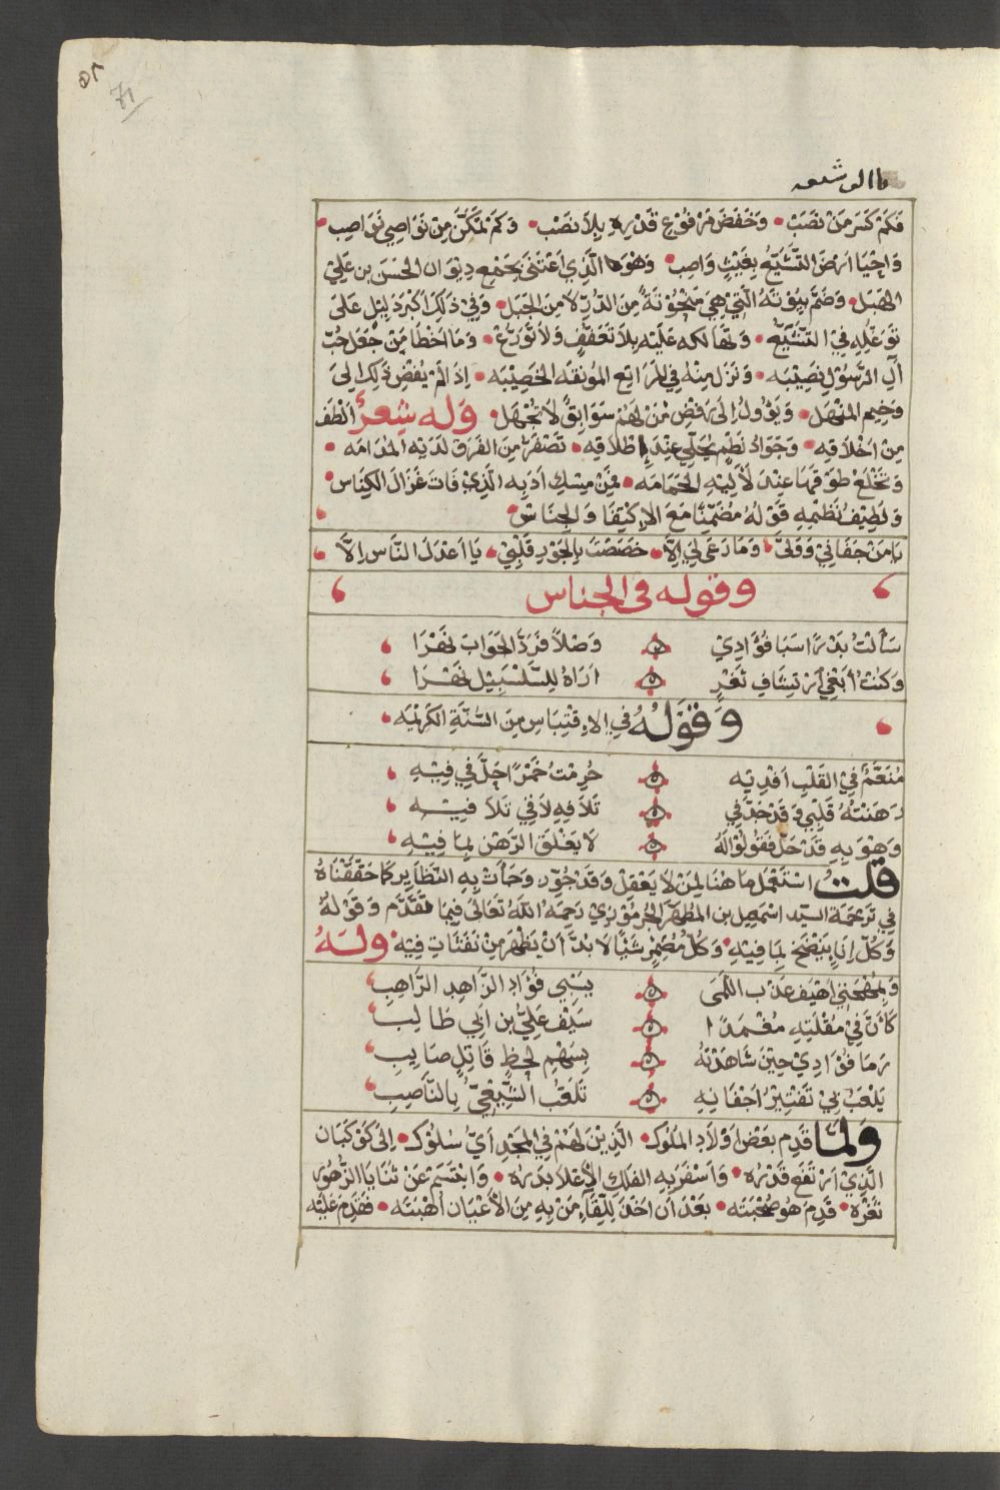 71
فَكَمْ كَسَرَ مَنْ نَصَبْ • وَخَفَضَ مَرْفُوْعِ قَدْرِهِ بِلاَ نَصْب • وَكَمْ تَمَكَّنَ مِنْ نَوَاصِي نَوَاصِب •
وَاحْيَا اَرْضَ التَّشَيُّعْ بِغَيْثٍ وَاصِب • وَهُوَ الَّذِي اعْتَنَى بِجَمْعِ دِيْوَانِ الْحَسَنِ بن عَلِيْ
الهَبَل • وَضَمَّ بُيُوْتَهُ الَّتِيْ هِيَ مَنْحُوْتَةٌ مِنَ الدُّرِّ لاَ مِنَ الجَبَل • وَفِيْ ذَلِكَ اكْبَرُ دَلِيْلٍ عَلَى
تَوَغُّلِهِ فِيْ التَّشَيُّعْ • وَتهَالكه عَلَيْه بِلاَ تَعَفُّفٍ وَلاَ تَوَرُّعْ • وَمَا اَخْطَا مَنْ جَعَلَ حُبَّ
آلِ الرَّسُوْلِ نَصِيْبَه • وَنَزَلَ مِنْهُ فِي المَرَاتِعِ المُوْنِقَه الخَصِيْبَه • اِذَا لَمْ يُفْضِ ذَلِكَ اِلَى
وَخِيْمِ المَنْهَل • وَيَؤُوْلُ اِلَى رَفْضِ مَنْ لَهُمْ سَوَابِقٌ لاَ تُجْهَل • وَله شِعرٌ اَلْطَف
مِنْ اَخْلاَقِه • وَجَوَادُ نَظْمٍ يُجَلِّي عِنْدَ اِطْلاَقِه • تَصْفَرُّ مِنَ الفَرَقِ لَدَيْه المُدَامَه •
وَتَخْلَعُ طَوْقَهَا عِنْدَ لَأْلِيْهِ الحَمَامَه • فَمِنْ مِسْكِ اَدَبِه الَّذِيْ فَاتَ غَزَالَ الكِنَاس •
وَلَطِيْفُ نَظْمِهِ قَوْلهُ مُضَمِّنًا مَعَ الاِكْتِفَا وَالجِنَاس •
يَا مَنْ جَفَانِيْ وَوَلَّى • وَمَا رَعَى لِيَ اِلَّا • خَصَصْتَ بِالجَوْرِ قَلْبِيْ • يَا اَعْدَلَ النَّاسِ اِلَّا •
وقوله فى الجناس
سَأَلْتُ بَدْرًا سَبَا فُؤَادِيْ وَصْلاً فَرَدَّ الجَوَابَ نَهْرَا
وَكُنْتُ اَبْغِيْ اَرْتِشَافِ ثَغْرٍ اَرَاهُ لِلسَّلْسَبِيْلِ نَهْرَا
وَقَوْلُهُ فِي الاِقْتِبَاسِ مِنَ السُّنَّةِ الكَرِيْمَه
مُنَعَّمٌ فِيْ القَلْبِ اَفْدِيْه حُرِمْتُ خَمْرًا حَلَّ فِي فِيْهِ
رَهَنْتُهُ قَلْبِيْ وَقَدْ خَدَّ فِي تَلاَفِهِ لاَ فِي تَلاَفِيْهِ
وَهُوَ بِهِ قَدْ حَلَّ فَقُوْلُوْا لَهُ لاَ يُغْلَقُ الرَّهْنُ بِمَا فِيْهِ
قلتُ اسْتَعْمَل مَا هُنَا لِمَنْ لاَ يَعْقِلْ وَقَدْ جُوِّزَ وَجَآءَتْ بِهِ النَّظَايِر كَمَا حَقَّقْنَاهُ
فِي تَرْجَمَة السيّد اسْمَعِيل بن المُطَهَّر الجُرْمُوْزِيْ رَحِمَهُ اللهُ تَعَالَى فِيْمَا تَقَدَّم وَقَوْلهُ
وَكُلُّ اِنَاءٍ يَنْضَحُ بِمَا فِيْهِ • وَكُلُّ مُضْمِرٍ شَيْئًا لاَ بُدَّ اَنْ يَظْهَرَ مِنْ نَفَثَاتِ فِيْهِ • وَلَهُ
وَبِمُهْجَتِيْ اَهْيَفُ عَذْب اللَّمَى يَسْبِي فُؤَادَ الزَّاهِدِ الرَّاهِبِ
كَاَنَّ فِيْ مُقْلَتِهِ مُغْمَدًا سَيْفُ عَلِيِّ بن اَبِي طَالِبِ
رَمَا فُؤَادِيْ حِيْنَ شَاهَدْتُهُ بِسَهْمِ لَحْظٍ قَاتِلٍ صَايِبِ
يَلْعَبُ بِيْ تَفْتِيْرُ اَجْفَانِهِ تَلَعُّبَ الشِّيْعِيِّ بِالنَّاصِبِ
وَلَمَّا قَدِمَ بَعْضُ اَوْلاَدِ المُلُوك • الَّذِيْنَ لَهُمْ فِي المَجْدِ اَيُّ سُلُوْك • اِلَى كَوْكَبَان
الَّذِيْ ارْتَفَعَ قَدْرُه • وَاَسْفَرَ بِهِ الفلك الأَعْلاَ بَدْرُه • وَابْتَسَمَ عَنْ ثَنَايَا الزُّهُوْرِ
ثَغْرُه • قَدِمَ هُوَ صُحْبَتَه • بَعْدَ اَنْ اَخَذَ لِلِّقَآءِ مَنْ بِهِ مِنَ الأَعْيَانِ اُهْبَتَه • فَقَدِمَ عَلَيْه